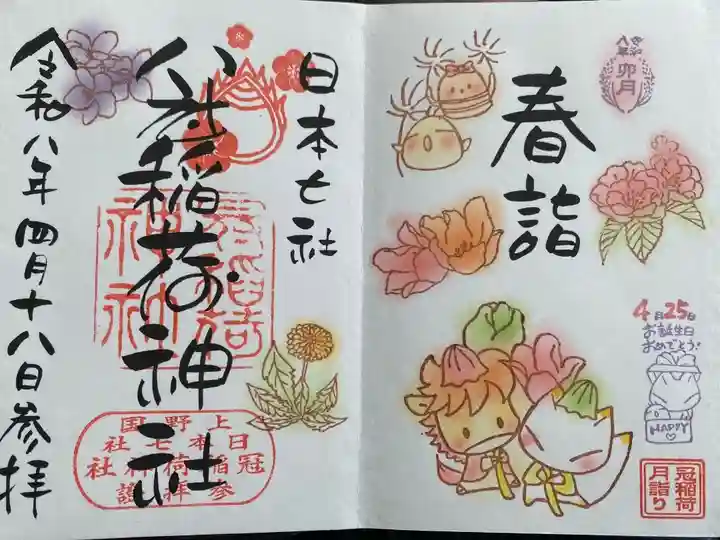 令和
八年
卯月
春詣
4月25日
お誕生日
おめでとう!
HAPPY
冠稲荷
月詣り
日本七社
冠稲荷神社
令和八年四月十八日参拝
上野国
日本七社
冠稲荷神社